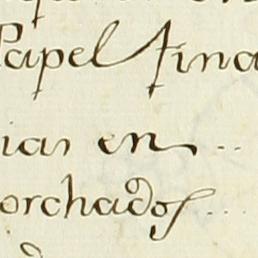 Papel fina
ias en ..
orchados ...